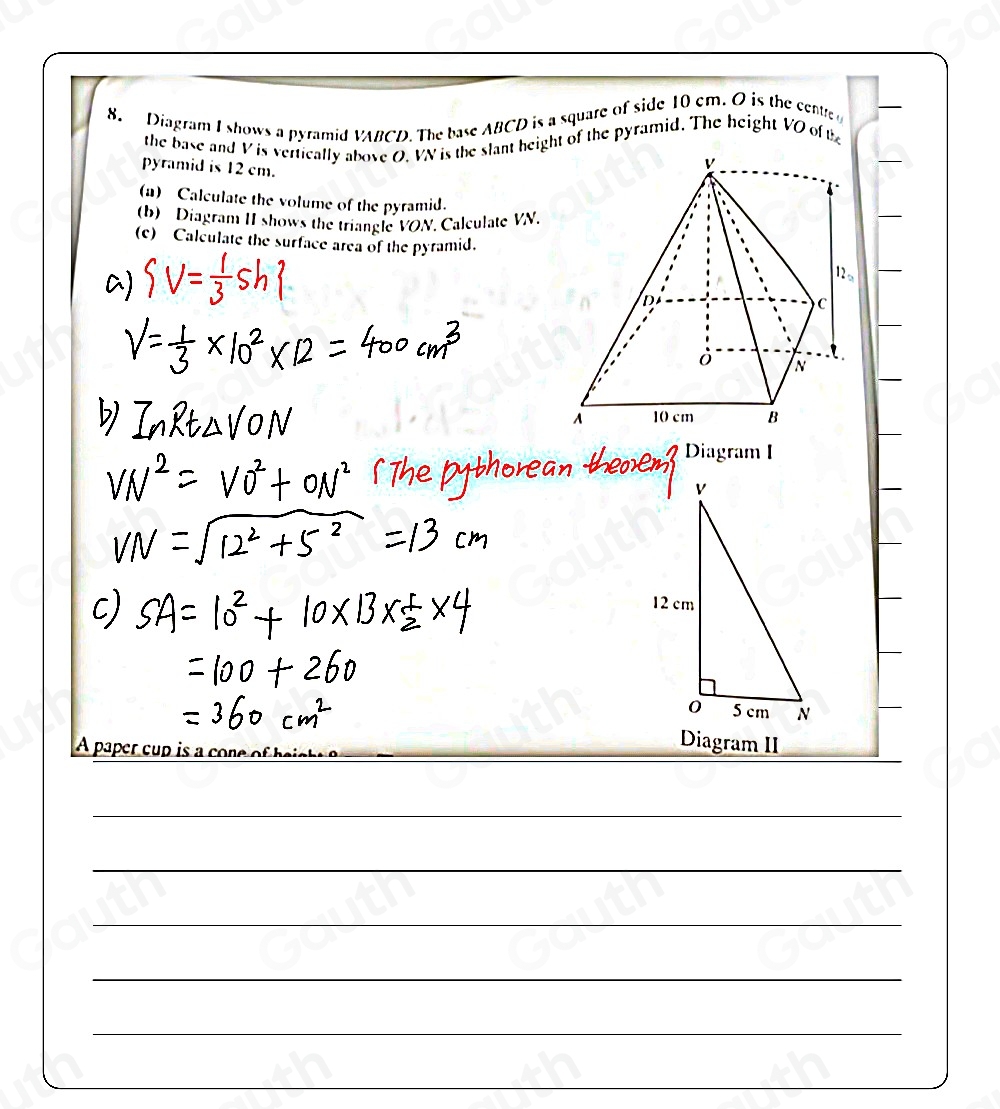 8. Diagram I shows a pyramid VABCD. The base ABCD is a square of side 10 cm. O is the centre
the base and V is vertically above O. VN is the slant height of the pyramid. The height VO of the
pyramid is 12 cm.
(a) Calculate the volume of the pyramid.
(b) Diagram II shows the triangle VON. Calculate VN.
(c) Calculate the surface area of the pyramid.
a) {V=1/3 Sh}
V=1/3 ×10²×12 = 400 cm³
b) In Rt△VON
VN² = VO² + ON² {The pythorean theorem}
VN = √12² + 5² = 13 cm
c) SA = 10² + 10×13×1/2×4
= 100 + 260
= 360 cm²
V
12
D
C
O
N
A
10 cm
B
Diagram I
V
12 cm
O
5 cm
N
Diagram II
A paper cup is a cone of height
Gauth